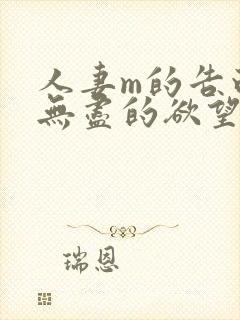 人妻m的告
無盡的欲望
瑞恩